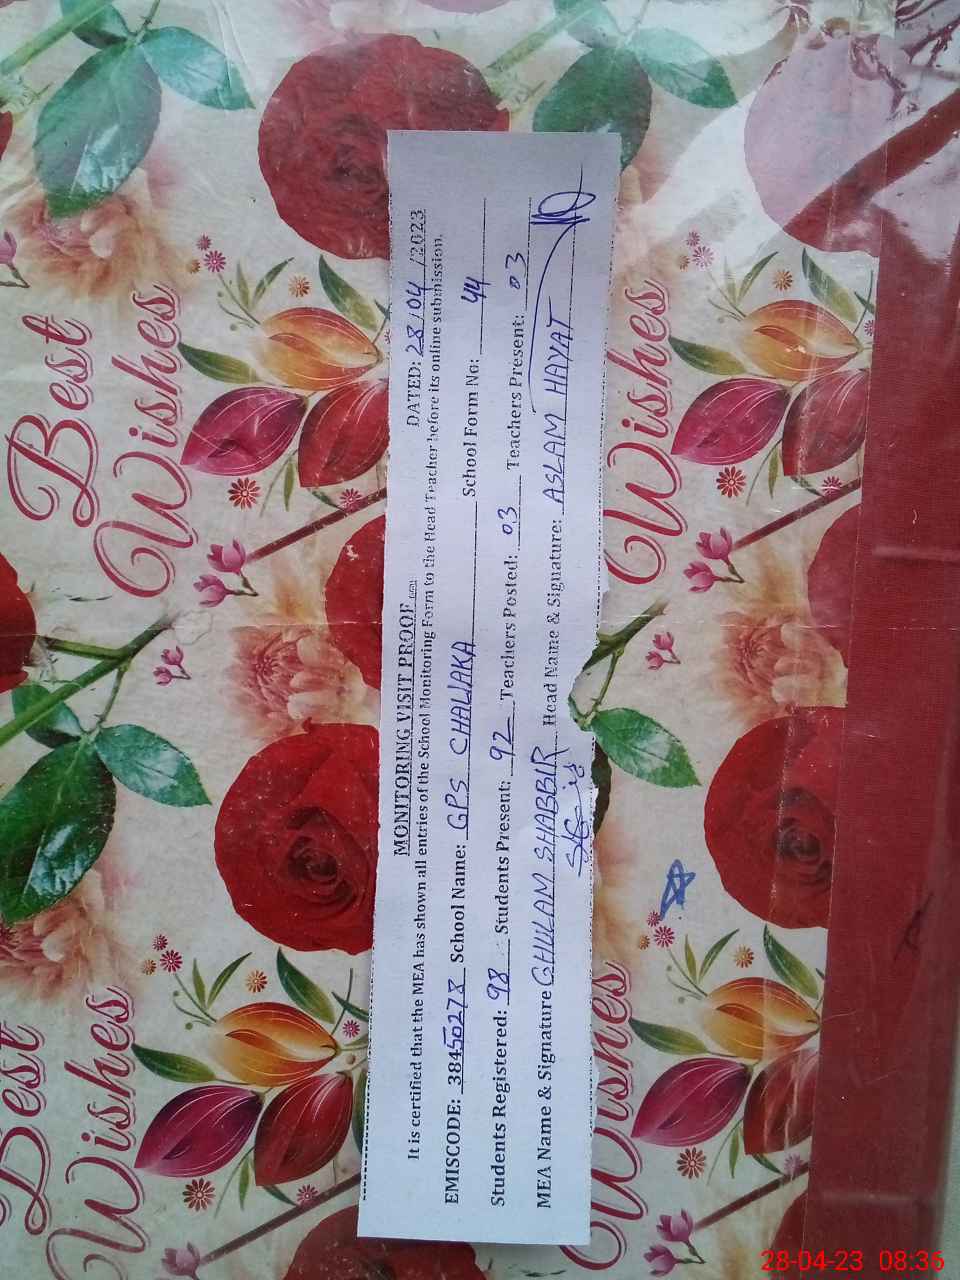 MONITORING VISIT PROOF DATED: 28/04/2023
It is certified that the MEA has shown all entries of the School Monitoring Form to the Head Teacher before its online submission.
EMISCODE: 38450273 School Name: GPS CHAWAKA School Form No: 44
Students Registered: 98 Students Present: 92 Teachers Posted: 03 Teachers Present: 03
MEA Name & Signature GHULAM SHABBIR Head Name & Signature: ASLAM HAYAT
Best
Wishes
Wishes
Best
Wishes
Wishes
28-04-23 08:36